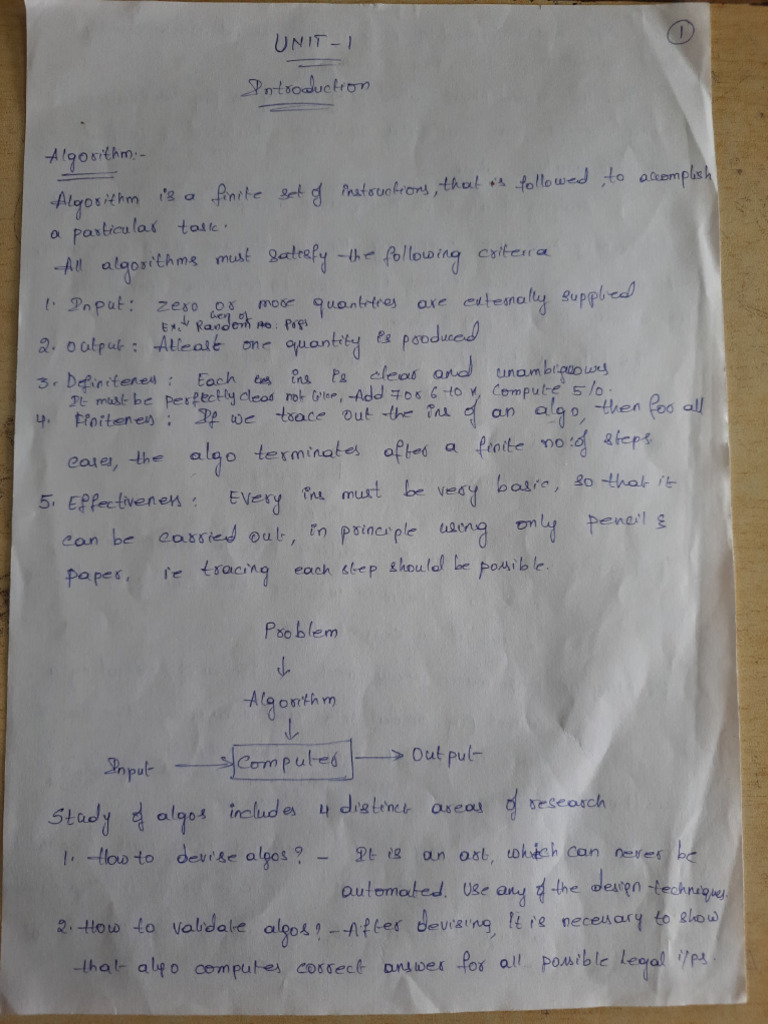 1
UNIT-1
Introduction
Algorithm:-
Algorithm is a finite set of instructions, that is followed, to accomplish
a particular task.
All algorithms must satisfy the following criteria
1. Input: zero or more quantities are externally supplied
Ex. ↓ Gen of Random no: Prgs
2. Output: Atleast one quantity is produced
3. Definiteness: Each ins is clear and unambiguous
It must be perfectly clear not like, Add 7 or 6 to x, Compute 5/0.
4. Finiteness: If we trace out the ins of an algo, then for all
cases, the algo terminates after a finite no: of steps
5. Effectiveness: Every ins must be very basic, so that it
can be carried out, in principle using only pencil &
paper. ie tracing each step should be possible.
Problem
↓
Algorithm
↓
Input → Computer → Output
Study of algos includes 4 distinct areas of research
1. How to devise algos? - It is an art, which can never be
automated. Use any of the design techniques.
2. How to validate algos? - After devising, It is necessary to show
that algo computes correct answer for all possible legal i/ps.